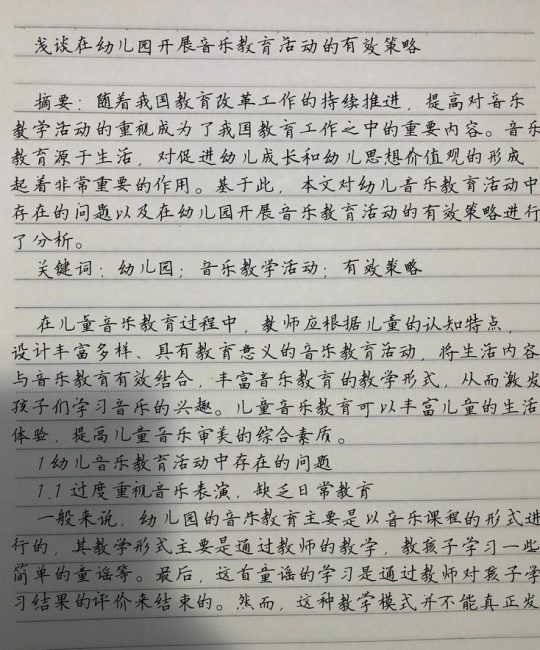 浅谈在幼儿园开展音乐教育活动的有效策略
摘要：随着我国教育改革工作的持续推进，提高对音乐
教学活动的重视成为了我国教育工作之中的重要内容。音乐
教育源于生活，对促进幼儿成长和幼儿思想价值观的形成
起着非常重要的作用。基于此，本文对幼儿音乐教育活动中
存在的问题以及在幼儿园开展音乐教育活动的有效策略进行
了分析。
关键词：幼儿园；音乐教学活动；有效策略
在儿童音乐教育过程中，教师应根据儿童的认知特点，
设计丰富多样、具有教育意义的音乐教育活动，将生活内容
与音乐教育有效结合，丰富音乐教育的教学形式，从而激发
孩子们学习音乐的兴趣。儿童音乐教育可以丰富儿童的生活
体验，提高儿童音乐审美的综合素质。
1幼儿音乐教育活动中存在的问题
1.1过度重视音乐表演，缺乏日常教育
一般来说，幼儿园的音乐教育主要是以音乐课程的形式进
行的，其教学形式主要是通过教师的教学，教孩子学习一些
简单的童谣等。最后，这首童谣的学习是通过教师对孩子学
习结果的评价来结束的。然而，这种教学模式并不能真正发